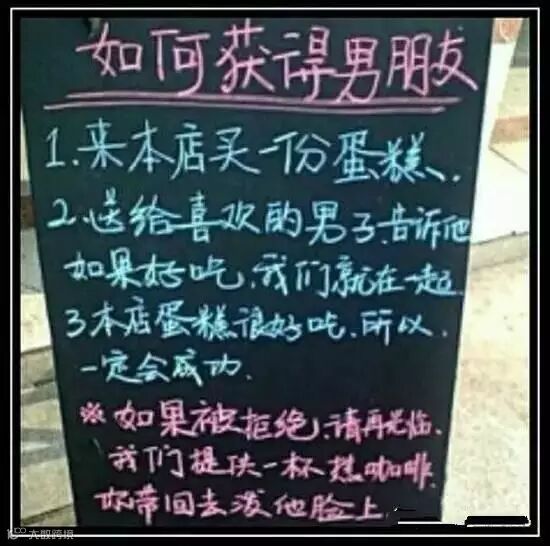 如何获得男朋友
1.来本店买一份蛋糕.
2.送给喜欢的男子,告诉他
如果好吃,我们就在一起.
3.本店蛋糕很好吃.所以.
一定会成功.
※如果被拒绝,请再光临.
我们提供一杯热咖啡
你带回去泼他脸上.
大数跨境